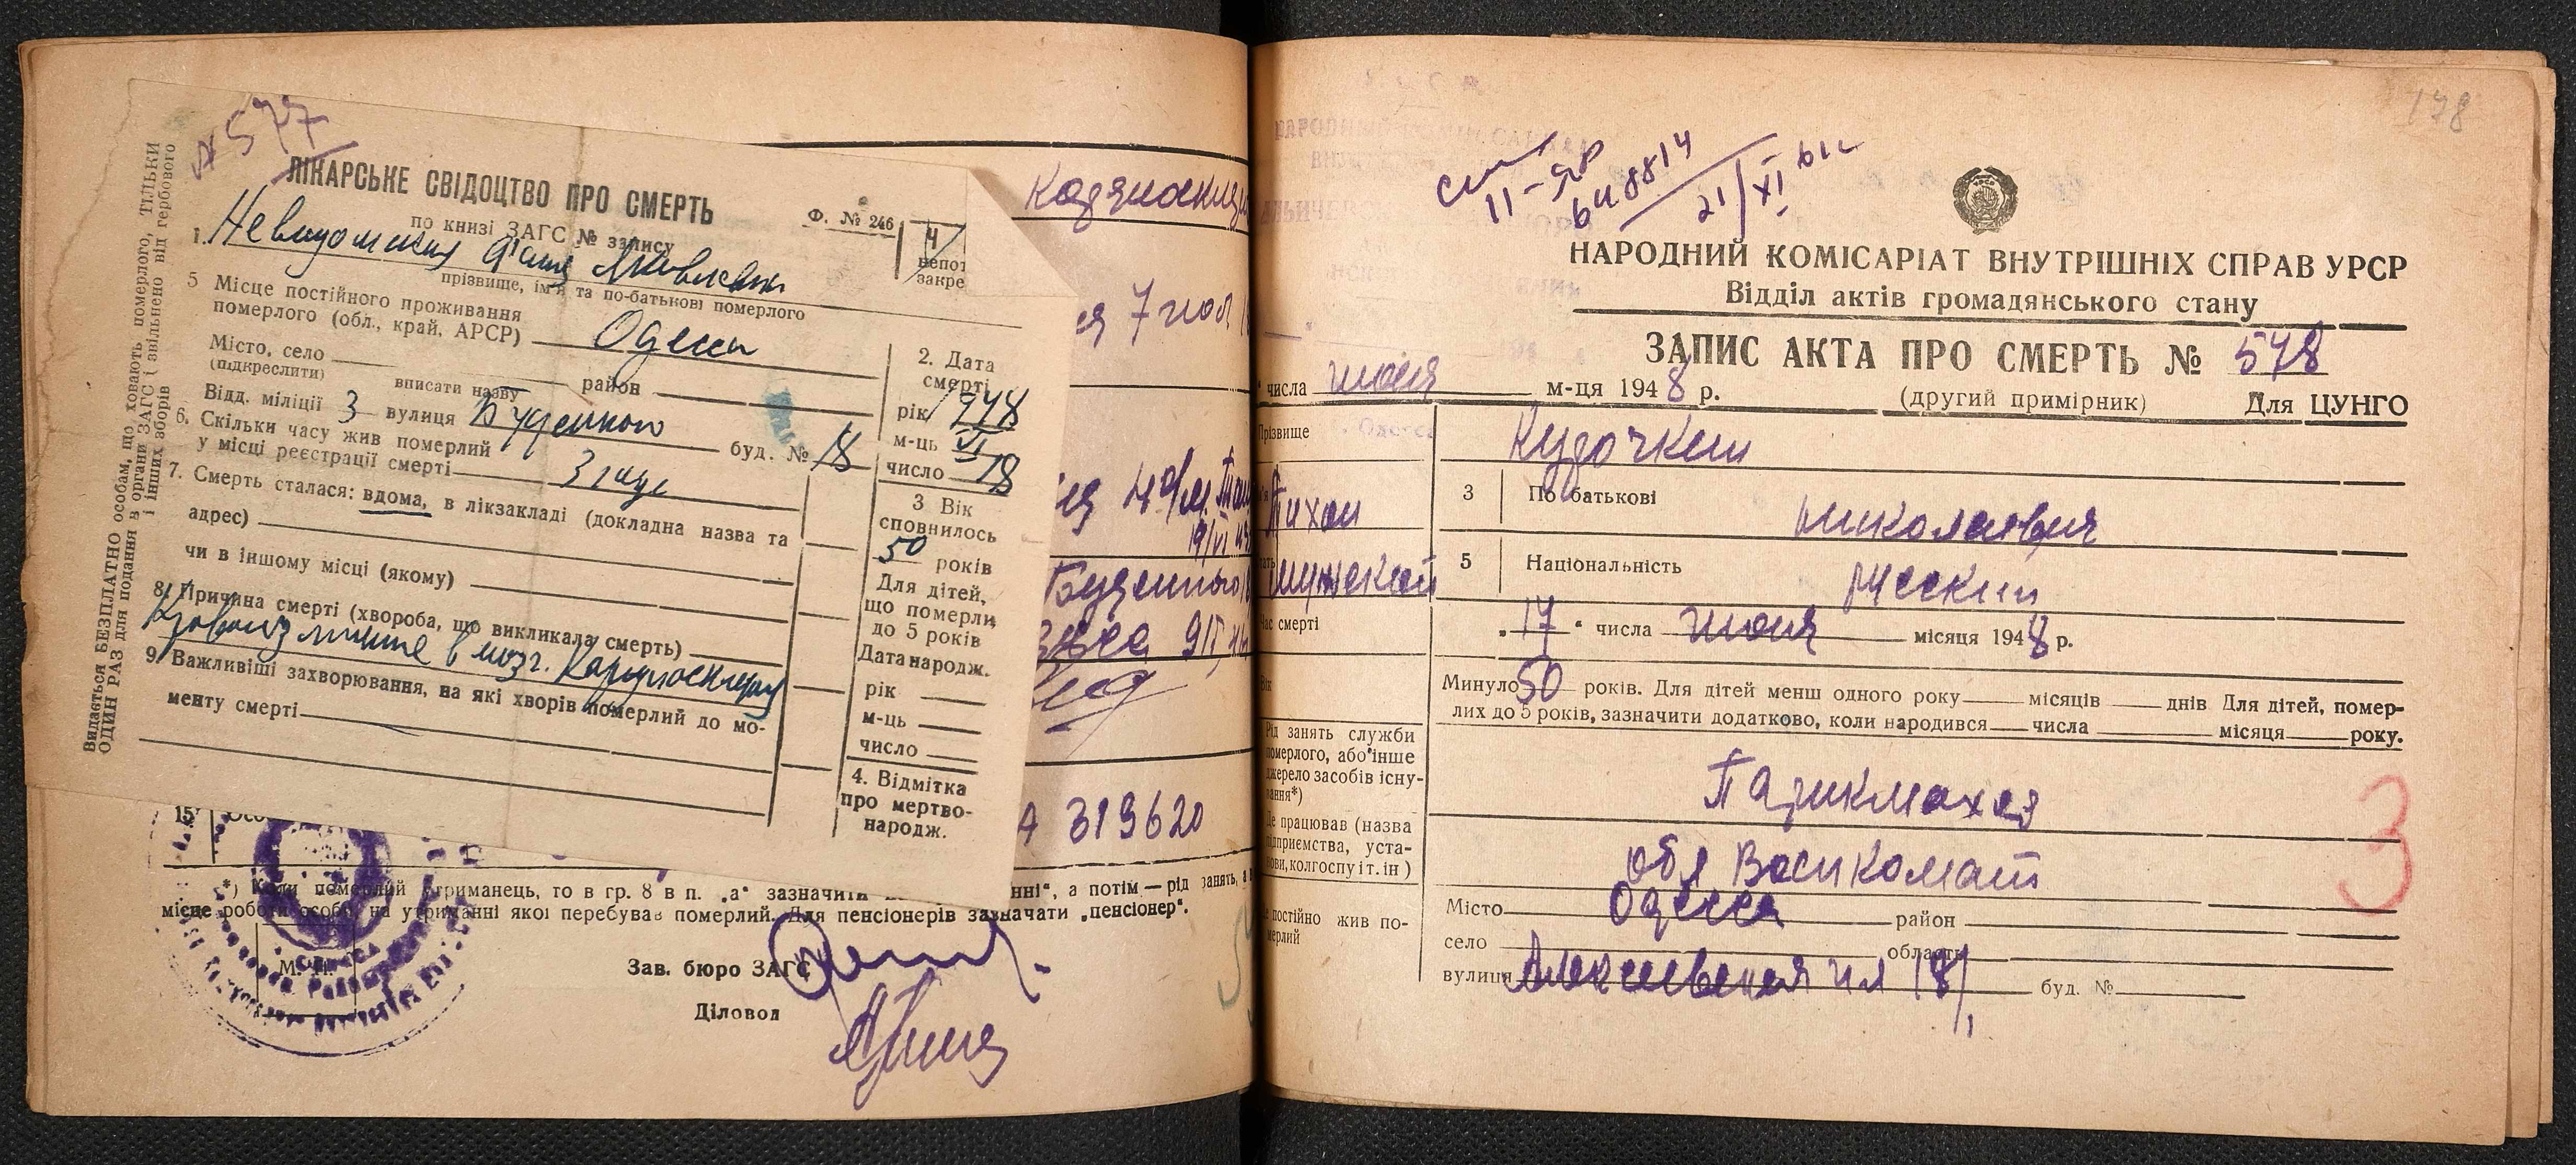 № 577
ЛІКАРСЬКЕ СВІДОЦТВО ПРО СМЕРТЬ
по книзі ЗАГС № запису
Ф. № 246
1. Невидомская Фаня Яковлевна
прізвище, ім'я та по-батькові померлого
5 Місце постійного проживання
померлого (обл., край, АРСР) Одесса
Місто, село район
(підкреслити) вписати назву
Відд. міліції 3 вулиця Буденного буд. № 18
6. Скільки часу жив померлий
у місці реєстрації смерті 3 года
7. Смерть сталася: вдома, в лікзакладі (докладна назва та
адрес)
чи в іншому місці (якому)
8. Причина смерті (хвороба, що викликала смерть)
Кровоизлияние в мозг. Кардиосклероз
9. Важливіші захворювання, на які хворів померлий до мо-
менту смерті
2. Дата
смерті
рік 1948
м-ць VI
число 18
3 Вік
сповнилось
50 років
Для дітей,
що померли
до 5 років
Дата народж.
рік
м-ць
число
4. Відмітка
про мертво-
народж.
Видається БЕЗПЛАТНО особам, що ховають померлого, ТІЛЬКИ
ОДИН РАЗ для подання в органи ЗАГС (звільнено від гербового
і інших зборів
Буденного
А 319620
15
*) Коли померлий утриманець, то в гр. 8 в п. „а" зазначити
нні", а потім — рід занять, а
місце роботи особи, на утриманні якої перебував померлий. Для пенсіонерів зазначати „пенсіонер".
М. П.
Зав. бюро ЗАГС
Діловод
178
11-ЯР
648814
21/XI-61г
НАРОДНИЙ КОМІСАРІАТ ВНУТРІШНІХ СПРАВ УРСР
Відділ актів громадянського стану
ЗАПИС АКТА ПРО СМЕРТЬ № 578
числа июня м-ця 1948 р. (другий примірник) Для ЦУНГО
Прізвище Кудочкин
Тихон 3 По батькові Николаевич
мужской 5 Національність русский
Час смерті „17" числа июня місяця 1948 р.
Вік Минуло 50 років. Для дітей менш одного року місяців днів Для дітей, помер-
лих до 5 років, зазначити додатково, коли народився числа місяця року.
Рід занять служби
померлого, або інше
джерело засобів існу-
вання*)
Парикмахер
Де працював (назва
підприємства, уста-
нови, колгоспу і т. ін)
обл Военкомат
Де постійно жив по-
мерлий
Місто Одесса район
село область
вулиця Алексеевская пл 18/1 буд. №
3